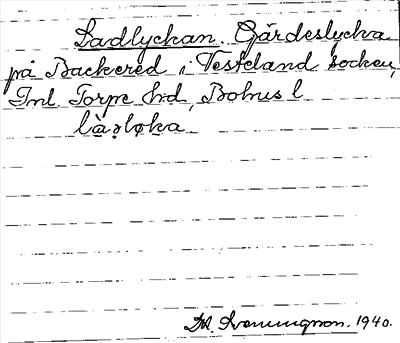 Ladlyckan. Gärdeslycka
på Backered i Vesterland socken,
Inl. Torpe hd, Bohus l
làǝløka
Sveningsson. 1940.